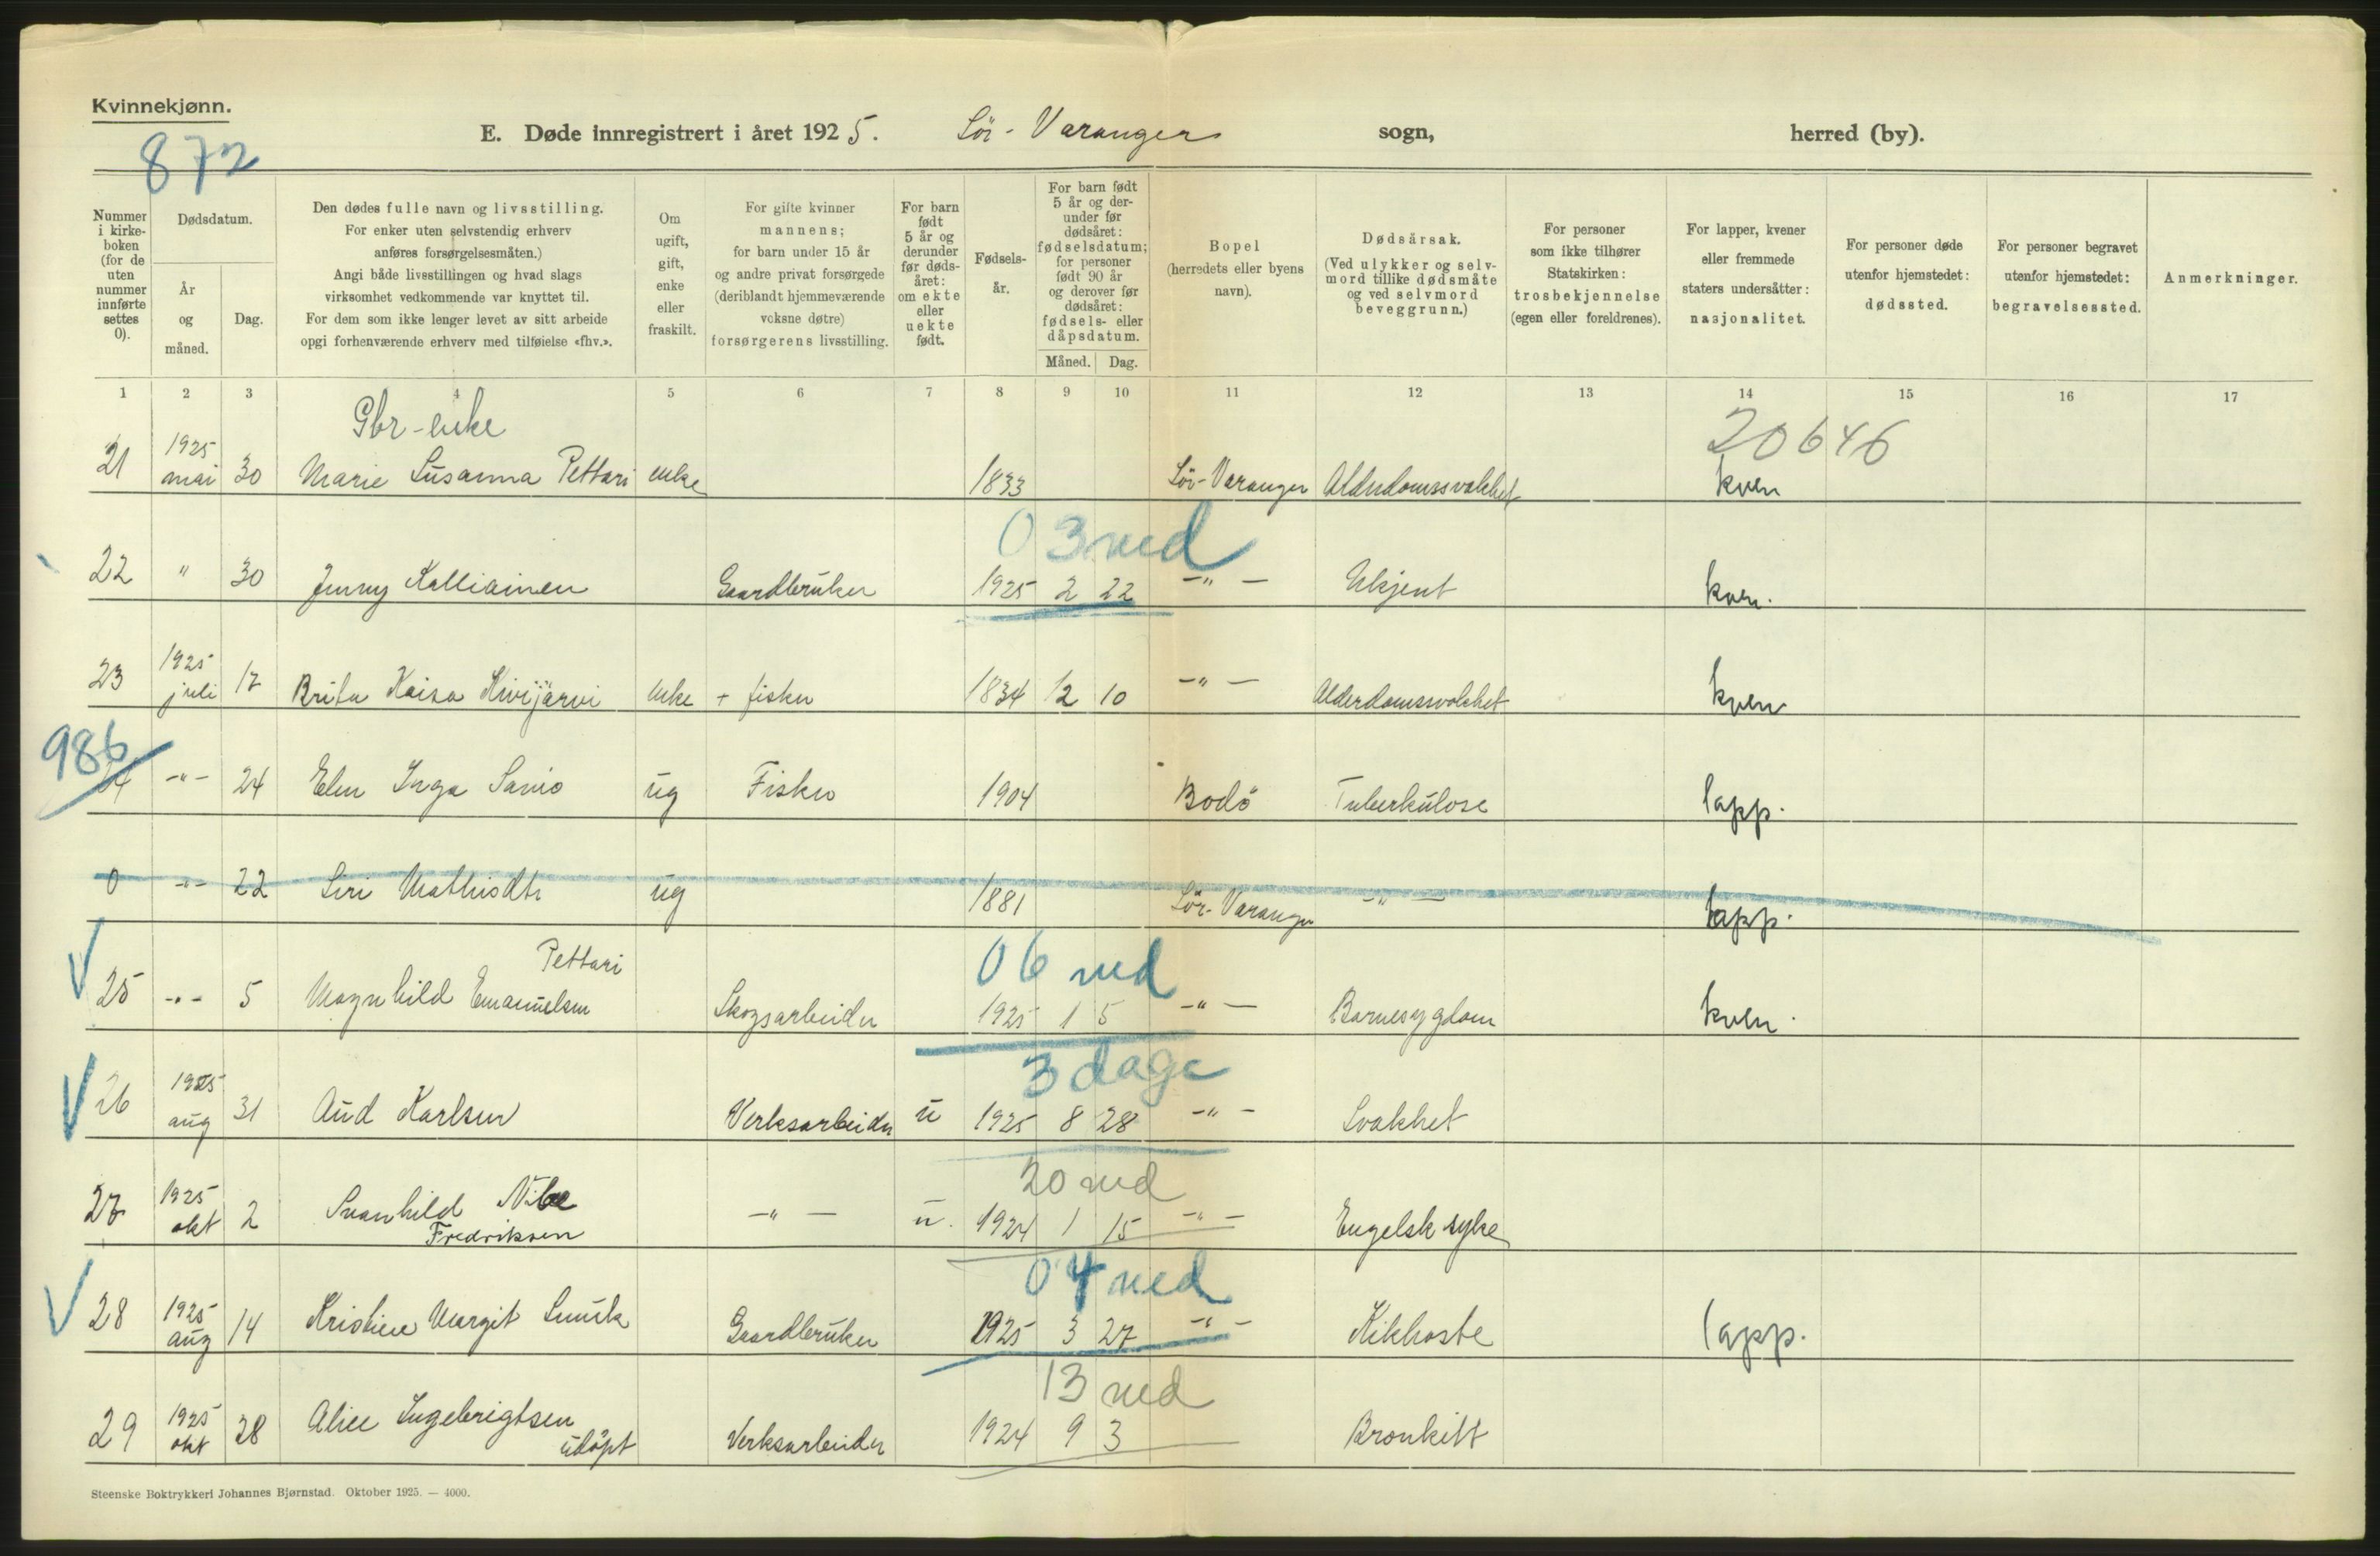 Kvinnekjønn.
872
E. Døde innregistrert i året 1925. Sör-Varanger sogn, herred (by).
Nummer i kirkeboken (for de uten nummer innførte settes 0).
Dødsdatum.
År og måned.
Dag.
Den dødes fulle navn og livsstilling.
For enker uten selvstendig erhverv
anføres forsørgelsesmåten.)
Angi både livsstillingen og hvad slags
virksomhet vedkommende var knyttet til.
For dem som ikke lenger levet av sitt arbeide
opgi forhenværende erhverv med tilføielse «fhv.».
Om ugift, gift, enke eller fraskilt.
For gifte kvinner
mannens;
for barn under 15 år
og andre privat forsørgede
(deriblandt hjemmeværende
voksne døtre)
forsørgerens livsstilling.
For barn født 5 år og derunder før dødsåret: om ekte eller uekte født.
Fødselsår.
For barn født 5 år og derunder før dødsåret: fødselsdatum; for personer født 90 år og derover før dødsåret: fødsels- eller dåpsdatum.
Måned. Dag.
Bopel
(herredets eller byens
navn).
Dødsårsak.
(Ved ulykker og selvmord tillike dødsmåte
og ved selvmord
beveggrunn.)
For personer
som ikke tilhører
Statskirken:
trosbekjennelse
(egen eller foreldrenes).
For lapper, kvener
eller fremmede
staters undersåtter:
nasjonalitet.
For personer døde
utenfor hjemstedet:
dødssted.
For personer begravet
utenfor hjemstedet:
begravelsessted.
Anmerkninger.
1 2 3 4 5 6 7 8 9 10 11 12 13 14 15 16 17
Gbr-enke
20646
21 1925 mai 30 Marie Susanna Pettari enke 1833 Sör-Varanger Alderdomssvakhet kven
03 md
22 " 30 Jenny Kalliainen Gaardbruker 1925 2 22 -"- Ukjent kven.
23 1925 juli 17 Brita Kaisa Kivijärvi enke + fisker 1834 12 10 -"- Alderdomssvakhet kven
986
24 -"- 24 Elen Inga Savio ug Fisker 1904 Bodö Tuberkulose lapp.
0 -"- 22 Siri Mathisdtr ug 1881 Sör-Varanger -"- lapp.
Pettari
06 md
25 -"- 5 Magnhild Emanuelsen Skogsarbeider 1925 1 5 -"- Barnesygdom kven.
3 dage
26 1925 aug 31 Aud Karlsen Verksarbeider u 1925 8 28 -"- Svakhet
20 md
27 1925 okt 2 Svanhild Nibe -"- u. 1924 1 15 -"- Engelsk syke
Fredriksen
04 md
28 1925 aug 14 Kristine Margit Smuk Gaardbruker 1925 3 27 -"- Kikhoste lapp.
13 md
29 1925 okt 28 Alice Ingebrigtsen Verksarbeider 1924 9 3 Bronkitt
udöpt
Steenske Boktrykkeri Johannes Bjørnstad. Oktober 1925. — 4000.